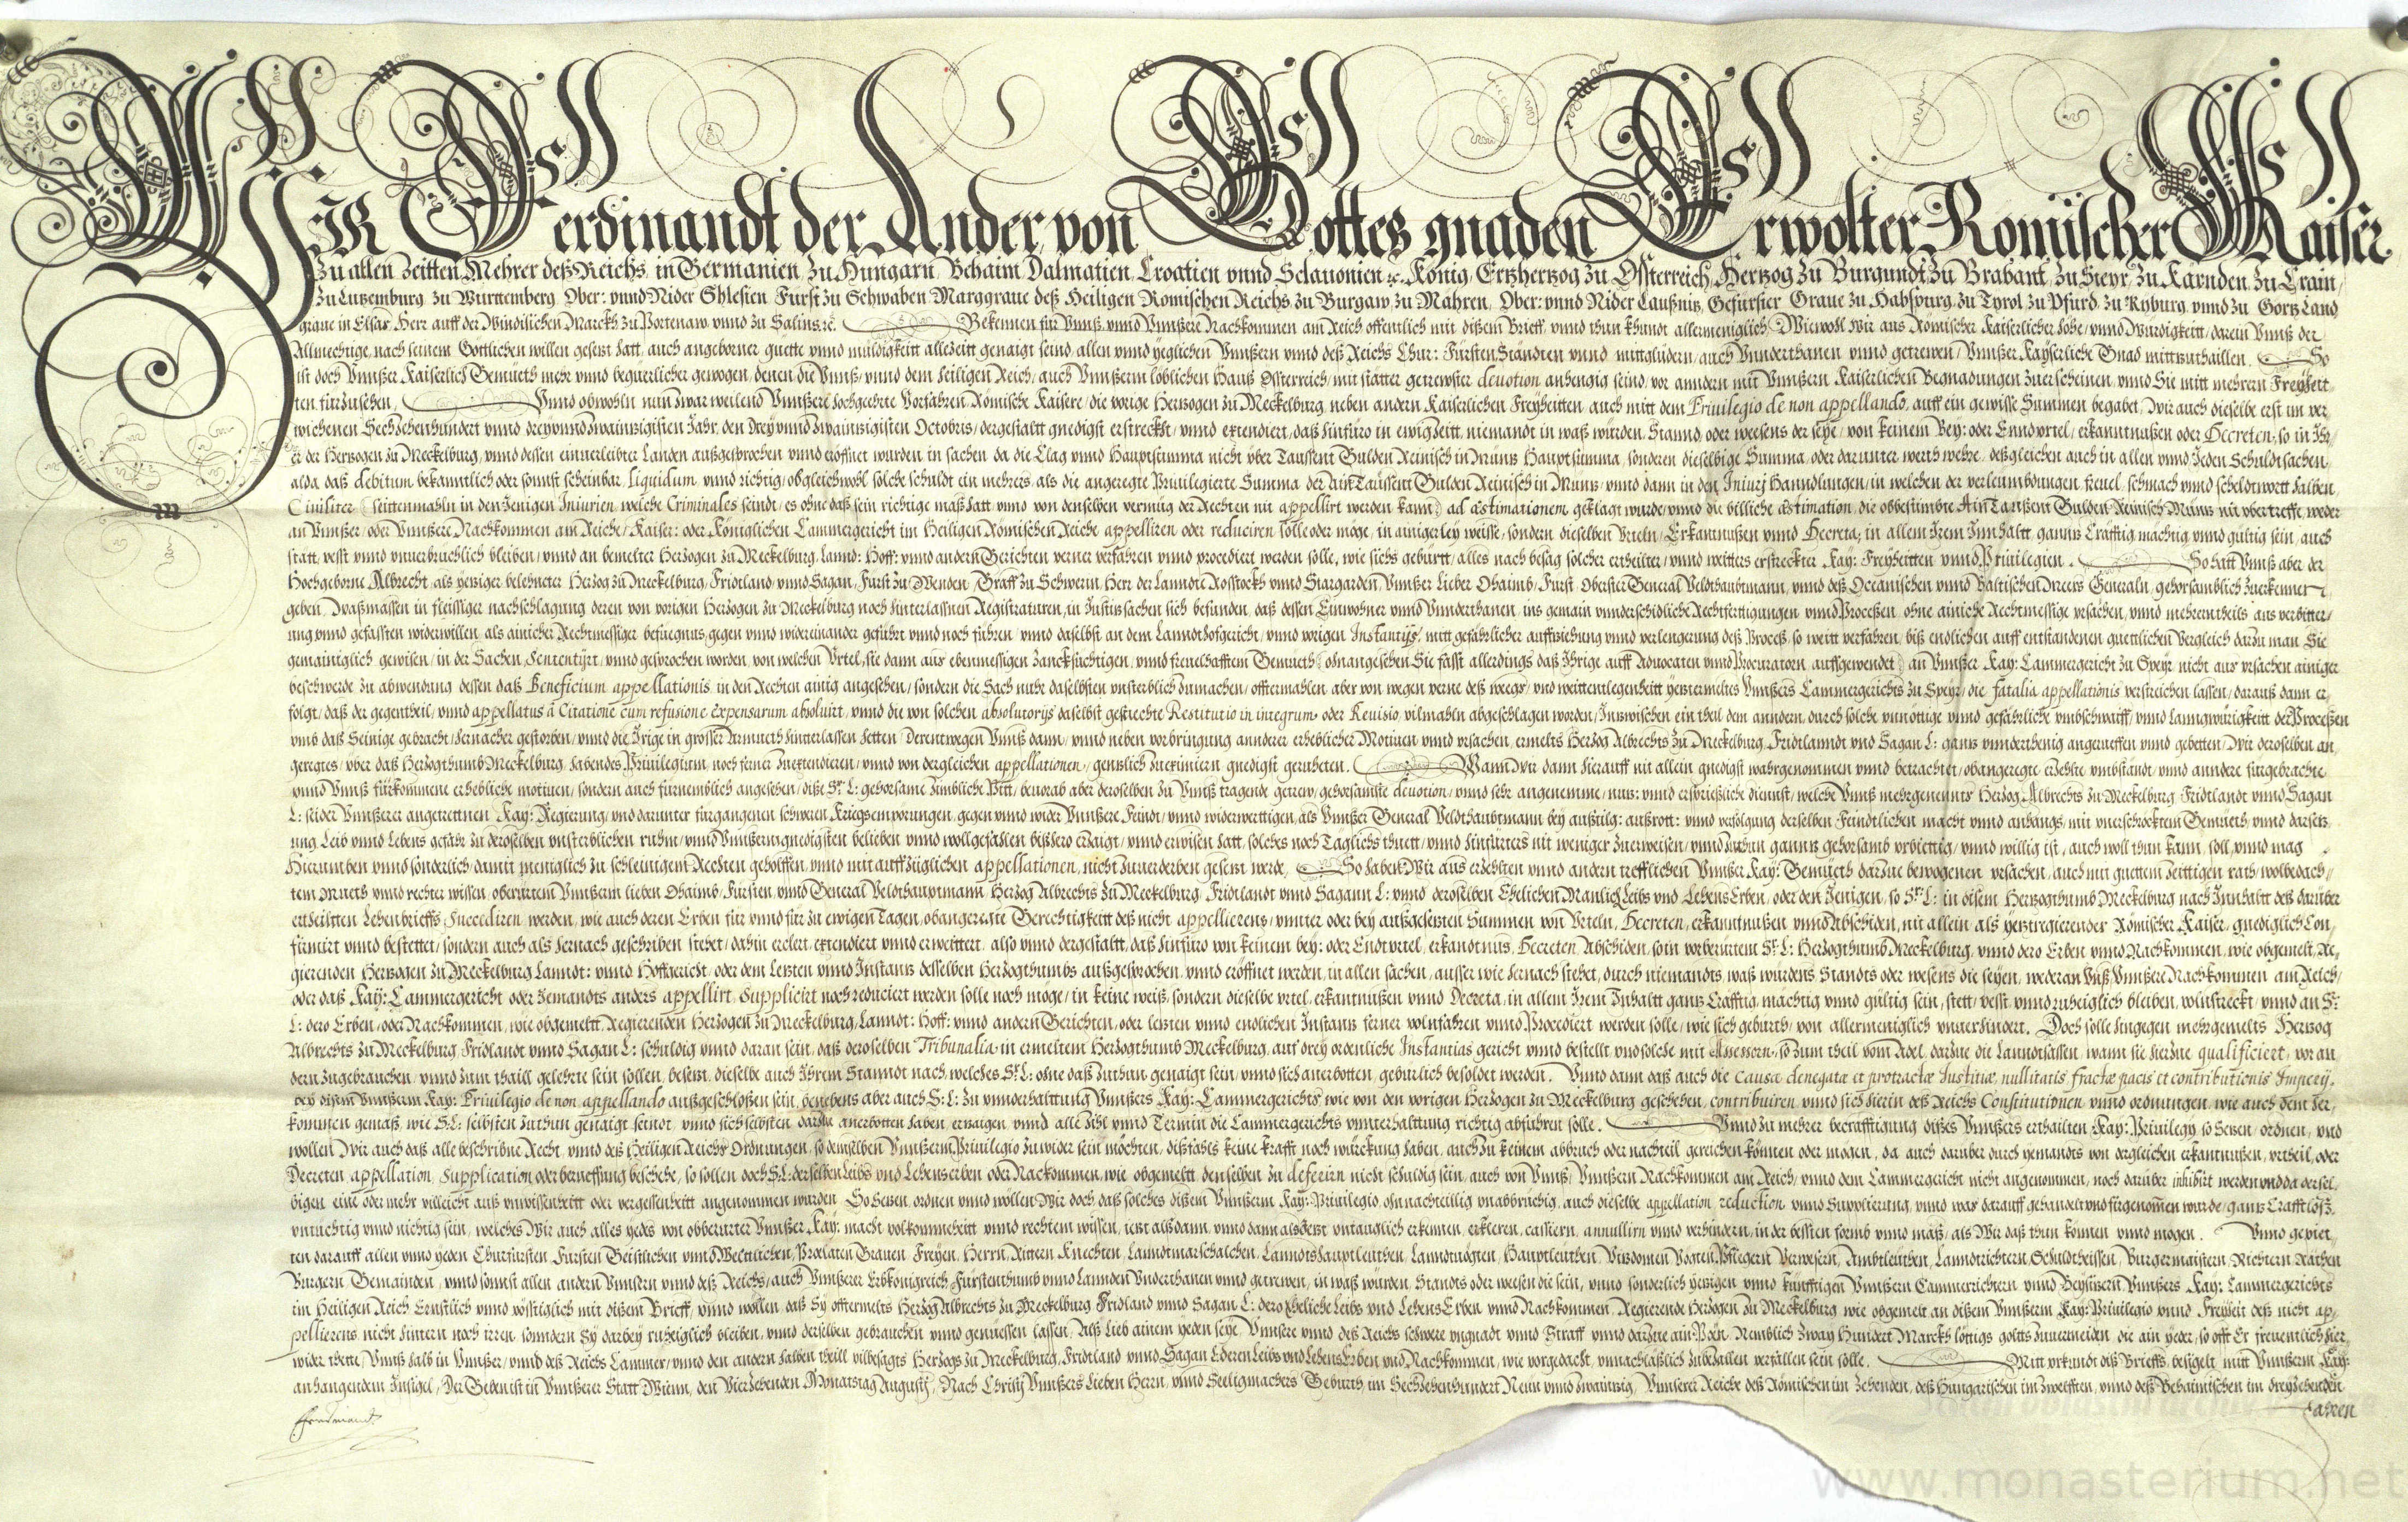 WIR Ferdinandt der Ander von Gottes gnaden Erwolter Romischer Kaiser
Zu allen Zeitten Mehrer deß Reichs, in Germanien, zu Hungarn, Behaim Dalmatien, Croatien vnnd Sclauonien ꝛc. König, Ertzhertzog zu Össterreich, Hertzog zu Burgundt, zu Brabant, zu Steyr, zu Kärnden, zu Crain,
zu Lutzemburg, zu Württemberg, Ober: vnnd Nider Shlesien, Fürst zu Schwaben, Marggraue deß Heiligen Römischen Reichs, zu Burgaw, zu Mähren, Ober: vnnd Nider Laußnitz, Gefürster Graue zu Habspurg, zu Tyrol, zu Pfürd, zu Kyburg, vnnd zu Görtz, Land
graue in Elsäs, Herr auff der Windilichen Marckh, zu Portenaw, vnnd zu Salins ꝛc. Bekennen für Vnnß, vnnd Vnnßere Nachkommen am Reich offentlich mit dißem Brieff, vnnd thun khundt allermeniglich, Wiewohl Wir aus Römischer Kaiserlicher höhe, vnnd Würdigkeitt, darein Vnnß der
Allmechtige, nach seinem Göttlichen willen gesetzt hatt, auch angeborner guette vnnd müldigkeitt allezeitt genaigt seind, allen vnnd yeglichen Vnnßern vnnd deß Reichs Chur: Fürsten Ständten vnnd mittglidern, auch Vnnderthanen vnnd getrewen, Vnnßer Kayserliche Gnad mittzuthaillen. So
ist doch Vnnßer Kaiserlich Gemueth mehr vnnd beguerlicher gewogen, denen, die Vnnß, vnnd dem heiligen Reich, auch Vnnßerm löblichen Hauß Össterreich, mit stätter getrewster devotion anhengig seind, vor anndern mit Vnnßern Kaiserlichen Begnadungen zuerscheinen, vnnd Sie mitt mehrern Freyheit
ten fürzusehen. Vnnd obwohln nun zwar weilend Vnnßere hochgeehrte Vorfahren Römische Kaisere, die vorige Hertzogen zu Meckelburg, neben andern Kaiserlichen Freyheitten auch mitt dem Priuilegio de non appellando, auff ein gewisse Summen begabet, Wir auch dieselbe erst im ver
wichenen Sechzehenhundert vnnd dreyvnndzwaintzigisten Jahr, den Drey vnnd zwaintzigisten Octobris, dergestaltt gnedigst erstreckht, vnnd extendiert, daß hinfüro in ewig Zeitt, niemandt in waß würden, Stannd, oder weesens der seye, von keinem Bey: oder Enndvrtel, erkanntnußen oder Decreten, so in Ih,
er der Hertzogen zu Meckelburg, vnnd dessen einuerleibter Landen außgesprochen vnnd eröffnet wurden in sachen da die Clag vnnd Hauptsumma nicht vber Taussent Gulden Reinisch in Müntz Hauptsumma, sonderen dieselbige Summa, oder darunter werth wehre, deßgleichen auch in allen vnnd Jeden Schuldtsachen,
alda, daß debitum bekanntlich oder sonnst scheinbar, liquidum, vnnd richtig, obgleichwohl solche schuldt ein mehrers, als die angeregte Priuilegierte Summa der ain Taussent Gulden Reinisch in Müntz, vnnd dann in den Iniurj hanndlungen, in welchen der verleumbdungen, freuel, schmach vnnd scheldtwortt halben,
Ciuiliter (seittenmahln in den Jenigen Iniurien welche Criminales seindt, es ohne daß sein richtige maß hatt vnnd von denselben vermüg der Rechten nit appellirt werden kann) ad æstimationem geklagt wurde, vnnd die billiche æstimation, die obbestimbte Ain Taussent Gulden Reinisch Müntz nit vbertreffe, weder
an Vnnßer, oder Vnnßere Nachkommen am Reiche, Kaiser: oder Königlichen Cammergericht im Heiligen Römischen Reiche appelliren oder reduciren solle oder möge, in ainigerley weisse, sondern dieselben Vrteln, Erkantnußen vnnd Decreta, in allem Irem Innhaltt gannz Cräfftig mächtig vnnd gültig sein, auch
statt, vesst vnnd vnuerbrüchlich bleiben, vnnd an bemelter Hertzogen zu Meckelburg, Lannd: Hoff: vnnd andern Gerichten verner verfahren vnnd procediert werden solle, wie sichs gebürtt, alles nach besag solcher ertheilter, vnnd weitters erstreckter Kay: Freyheitten vnnd Priuilegien. So hatt Vnnß aber der
Hochgeborne Albrecht, als yetziger belehneter Hertzog zu Meckelburg, Fridtland, vnnd Sagan, Fürst zu Wenden, Graff zu Schwerin, Herr der Lanndte Rosstockh vnnd Stargarden, Vnnßer Lieber Ohaimb, Fürst, Obersster General Veldthaubtmann, vnnd deß Oceanischen vnnd Baltischen Meers Generaln, gehorsamblich zuerkennen
geben, Waßmassen in fleissiger nachschlagung deren von vorigen Hertzogen zu Meckelburg noch hinterlassnen Registraturen, in Justitssachen sich befunden, daß dessen Einwohner vnnd Vnnderthanen, ins gemain vnnderschidliche Rechtfertigungen vnnd Processen, ohne ainiche Rechtmessige vrsachen, vnnd mehrerntheils aus verbitter,
ung vnnd gefassten widerwillen, als ainicher Rechtmessiger befuegnus, gegen vnnd widereinander geführt vnnd noch führen, vnnd daselbst an dem Lanndt hofgericht, vnnd vorigen Instantijs, mitt gefährlicher auffziehung vnnd verlengerung deß Proceß, so weitt verfahren, biß endlichen auff entstandenen guettlichen Vergleich dartzu man Sie
gemainiglich gewisen, in der Sachen Sententijrt, vnnd gesprochen worden, von welchen Vrtel, sie dann aus ebenmessigen zancksichtigen, vnnd freuelhafftem Gemueth (ohnangesehen Sie fasst allerdings daß Ihrige auff Aduocaten vnnd Procuratorn, auffgewendet) an Vnnßer Kay: Cammergericht zu Speyr nicht aus vrsachen ainiger
beschwerde zu abwendung dessen daß Beneficium appellationis, in den Rechten ainig angesehen, sondern die Sach nuhr daselbsten vnsterblich zumachen, offtermahlen aber von wegen verne deß weegs, vnd weittentlegenheitt yetztermeltes Vnnßers Cammergerichts zu Speyr, die fatalia appellationis verstreichen lassen, daraus dann er
folgt, daß der gegentheil, vnnd appellatus à Citatione cum refusione expensarum absoluirt, vnnd die von solchen absolutorijs daselbst gesuechte Restitutio in integrum oder Reuisio, vilmahln abgeschlagen worden, Intzwischen ein theil dem anndern, durch solche vnnöttige vnnd gefährliche vmbschwaiff, vnnd lanngwürigkeitt der Proceßen
vmb daß Seinige gebracht, hernacher gestorben, vnnd die Irige in grosser Armueth hintterlassen hetten, Derentwegen Vnnß dann, vnnd neben vorbringung annderer erheblicher Motiuen vnnd vrsachen, ermelts Hertzog Albrechts zu Meckelburg, Fridtlanndt vnd Sagan L: gantz vnnderthenig angerueffen vnnd gebetten, Wir deroselben an,
geregtes, vber daß Hertzogthumb Meckelburg, habendes Priuilegium, noch ferner zuextendieren, vnnd von dergleichen appellationen, genzlich zueximiern gnedigst geruheten. Wann Wir dann hierauff nit allein gnedigst wahrgenommen vnnd betrachtet, obangeregte erzehlte vmbständt, vnnd anndere fürgebrachte
vnnd Vnnß fürkommene erhebliche motiuen, sondern auch fürnemblich angesehen, dise Sr. L: gehorsame zimbliche Bitt, beuorab aber deroselben zu Vnnß tragende getrew, gehorsamste deuotion, vnnd sehr angenemme, nutz: vnnd erspriesliche diennst, welche Vnnß mehrgenennts Hertzog Albrechts zu Meckelburg Fridtlandt vnnd Sagan
L: seider Vnnßerer angetrettnen Kay: Regierung, vnd darunter fürgangenen schweren Kriegsempörungen, gegen vnnd wider Vnnßere Feindt, vnnd widerwerttigen, als Vnnßer General Veldthaubtmann bey außtilg: außrott: vnnd verfolgung derselben Feindtlichen macht vnnd anhangs, mit vnerschrocktem Gemueth, vnnd darsetz,
ung Leib vnnd Lebens gefahr zu deroselben vnsterblichen ruhm, vnnd Vnnßerm gnedigsten belieben vnnd wollgefallen bißhero erzaigt, vnnd erwisen hatt, solches noch Täglichs thuett, vnnd hinfürters nit weniger zuerweisen, vnnd zuthun gantz gehorsamb vrbiettig, vnnd willig ist, auch woll thun kann, soll, vnnd mag
Hierumben vnnd sonderlich, damit meniglich zu schleinigem Rechten geholffen, vnnd mit auffzüglichen appellationen, nicht zuuerderben gesetzt werde. So haben Wir aus erzehlten vnnd andern trefflichen Vnnßer Kay: Gemüeth dartzue bewogenen vrsachen, auch mit guettem zeittigen rath, wolbedach,
tem muets vnnd rechter wissen, oberürtem Vnnßerm lieben Ohaimb, Fürsten vnnd General Veldthauptmann Hertzog Albrechts zu Meckelburg, Fridtlandt vnnd Sagann L: vnnd deroselben Ehelichen Manlich Leibs vnd Lehens Erben, oder den Jenigen, so Sr. L: in disem Hertzogthumb Meckelburg nach Innhaltt des darüber
ertheiltten Lehenbrieffs succediren, werden, wie auch deren Erben für vnnd für zu ewigen Tagen, obangeregte Gerechtigkeitt deß nicht appellierens, vnnter oder bey außgesetzten Summen von Vrteln, Decreten, erkanntnußen vnnd Abschiden, nit allein als yetztregierender Römischer Kaiser, gnediglich Con,
firmirt vnnd bestettet, sondern auch als hernach geschriben stehet, dahin erclert, extendiert vnnd erweittert, also vnnd dergestaltt, daß hinfüro von keinem bey: oder Endt vrtel, erkandtnus, Decreten, Abschiden, so in vorberürtem Sr. L: Hertzogthumb Meckelburg, vnnd dero Erben vnnd Nachkommen, wie obgemelt, Re,
gierenden Hertzogen zu Meckelburg Lanndt: vnnd Hoffgericht, oder dem letzten vnnd Instantz desselben Hertzogthumbs außgesprochen, vnnd eröffnet werden, in allen sachen, ausser wie hernach stehet, durch niemandts, waß würdens Standts oder wesens die seyen, weder an Vnß, Vnnßere Nachkommen am Reich,
oder daß Kay: Cammergericht oder Jemandts anders, appellirt, supplicirt noch reduciert werden solle noch möge, in keine weiß, sondern dieselbe vrtel, erkantnußen vnnd Decreta, in allem Irem Inhaltt gantz Crafftig, mächtig vnnd gültig sein, stett, vesst, vnnd ruheiglich bleiben, volnstreckt, vnnd an Sr.
L: dero Erben, oder Nachkommen, wie obgemeltt Regierenden Hertzogen zu Meckelburg, Lanndt: Hoff: vnnd andern Gerichten, oder letzten vnnd endlichen Instantz ferner volnfahren vnnd Procediert werden solle, wie sich gebürth, von allermeniglich vnuerhindert. Doch solle hingegen mehrgemelts Hertzog
Albrechts zu Meckelburg, Fridlandt vnnd Sagan L: schuldig vnnd daran sein, daß deroselben Tribunalia in ermeltem Hertzogthumb Meckelburg, auf drey ordenliche Instantias gericht vnnd bestellt, vnd solche mit Assessorn, so zum theil vom Adel, dartzue die Lanndtsässen, wann sie hierzue qualificiert, vor an
dern zugebrauchen, vnnd zum thaill gelehrte sein sollen, besetzt, dieselbe auch Ihrem Stanndt nach, welches Sr. L: ohne daß zuthun genaigt sein, vnnd sich anerbotten, gebürlich besoldet werden. Vnnd dann daß auch die causæ denegatæ et protractæ Iustitiæ, nullitatis, fractæ pacis et contributionis Imperij,
bey disem Vnnßerm Kay: Priuilegio de non appellando außgeschloßen sein, benebens aber auch S: L: zu vnnderhalttung Vnnßers Kay: Cammergerichts wie von den vorigen Hertzogen zu Meckelburg geschehen, contribuiren, vnnd sich hierin deß Reichs Constitutionen vnnd ordnungen, wie auch dem her,
kommen gemäß, wie S: L: selbsten zuthun genaigt seindt, vnnd sich selbsten dartzu anerbotten haben, ertzaigen, vnnd alle Zihl vnnd Termin die Cammergerichts vnnterhalttung richtig abführen solle. Vnnd zu mehrer becräfftigung dißes Vnnßers ertheilten Kay: Priuilegij, so Setzen, ordnen, vnd
wollen Wir auch daß alle beschribne Recht, vnnd deß Heiligen Reichs Ordnungen, so demselben Vnnßerm Priuilegio zuwider sein möchten, dißfahls keine krafft noch würckung haben, auch zu keinem abbruch oder nachteil gereichen können oder mögen, da auch darüber durch yemandts von dergleichen erkantnußen, vrtheil, oder
Decreten appellation, supplication oder berueffung beschehe, so sollen doch S: L: derselben Leibs vnd Lehens erben oder Nackommen, wie obgemeltt denselben zu deferirn nicht schuldig sein, auch von Vnnß, Vnnßern Nachkommen am Reich, vnnd dem Cammergericht nicht angenommen, noch darüber inhibirt werden vnd da dersel,
bigen eine oder mehr villeicht auß vnwissenheitt oder vergessenheitt angenommen wurden, So setzen, ordnen vnnd wollen Wir doch, daß solches dißem Vnnßerm Kay: Priuilegio, ohnachteilig vnabbrüchig, auch dieselbe appellation, reduction, vnnd Supplierung, vnnd waz darauff gehandelt vnd fürgenomen wurde, gantz Crafftloß,
vntüchtig vnnd nichtig sein, welches Wir auch alles yedes von obberürter Vnnßer Kay: macht volkommeheitt vnnd rechtem wissen, ietzt alß dann, vnnd dann alß ietzt vntauglich erkennen, erkleren, cassiern, annullirn vnnd verhindern, in der besten formb vnnd maß, als Wir daß thun können vnnd mögen. Vnnd gepiet,
ten darauff allen vnnd yeden Churfürsten, Fürsten Geistlichen vnnd Welttlichen, Prælaten, Grauen, Freyen, Herrn, Rittern, Knechten, Lanndtmarschalchen, Lanndtshauptleuthen, Lanndtvögten, Hauptleuthen, Vitzdomen, Vogten, Pflegern, Verwesern, Ambtleuthen, Lanndtrichtern, Schuldtheissen, Burgermaistern, Richtern, Räthen
Burgern Gemainden, vnnd sonnst allen andern Vnnßern vnnd deß Reichs, auch Vnnßerer Erbkönigreich, Fürstenthumb vnnd Lannden Vnderthanen vnnd getrewen, in waß würden, Standts oder wesen die sein, vnnd sonderlich yetzigen vnnd künfftigen Vnnßern Cammerrichtern, vnnd Beysitzern, Vnnßers Kay: Cammergerichts
im Heiligen Reich Ernstlich vnnd vösstiglich mit dißem Brieff, vnnd wollen, daß Sy offtermelts Hertzog Albrechts zu Meckelburg Fridland vnnd Sagan L: dero Eheliche Leibs vnd Lehens Erben vnnd Nachkommen, Regierende Hertzogen zu Meckelburg wie obgemelt an dißem Vnnßerm Kay: Priuilegio vnnd Freyheit deß nicht ap,
pellierens nicht hintern noch irren, sonndern Sy darbey ruheiglich bleiben, vnnd derselben gebrauchen vnnd genüessen lassen, Alß Lieb ainem yeden seye, Vnnsere vnnd deß Reichs schwere vngnadt vnnd Straff, vnnd dartzue ain Pöen, Nemblich Zway Hundert Marckh löttigs goltts zuuermeiden, die ain yeder, so offt Er freuentlich hier
wider thette, Vnnß halb in Vnnßer, vnnd deß Reichs Cammer, vnnd den andern halben theill vilbesagts Hertzogs zu Meckelburg, Fridtland vnnd Sagan L: deren Leibs vnd Lehens Erben vnd Nachkommen, wie vorgedacht, vnnachläßlich zubezallen verfallen sein solle. Mitt vrkundt diß Brieffs, besigelt mitt Vnnßerm Kay:
anhangendem Insigel, Der Geben ist in Vnnßerer Statt Wienn, den Vierzehenden Monatstag Augustij, Nach Christj Vnnßers Lieben Herrn, vnnd Seeligmachers Geburth, im Sechzehenhundert Neun vnnd zwaintzig, Vnnserer Reiche deß Römischen im Zehenden, deß Hungarischen im zwelfften, vnnd deß Behaimischen im dreyzehenden
Jahren
Ferdinand
www.monasterium.net